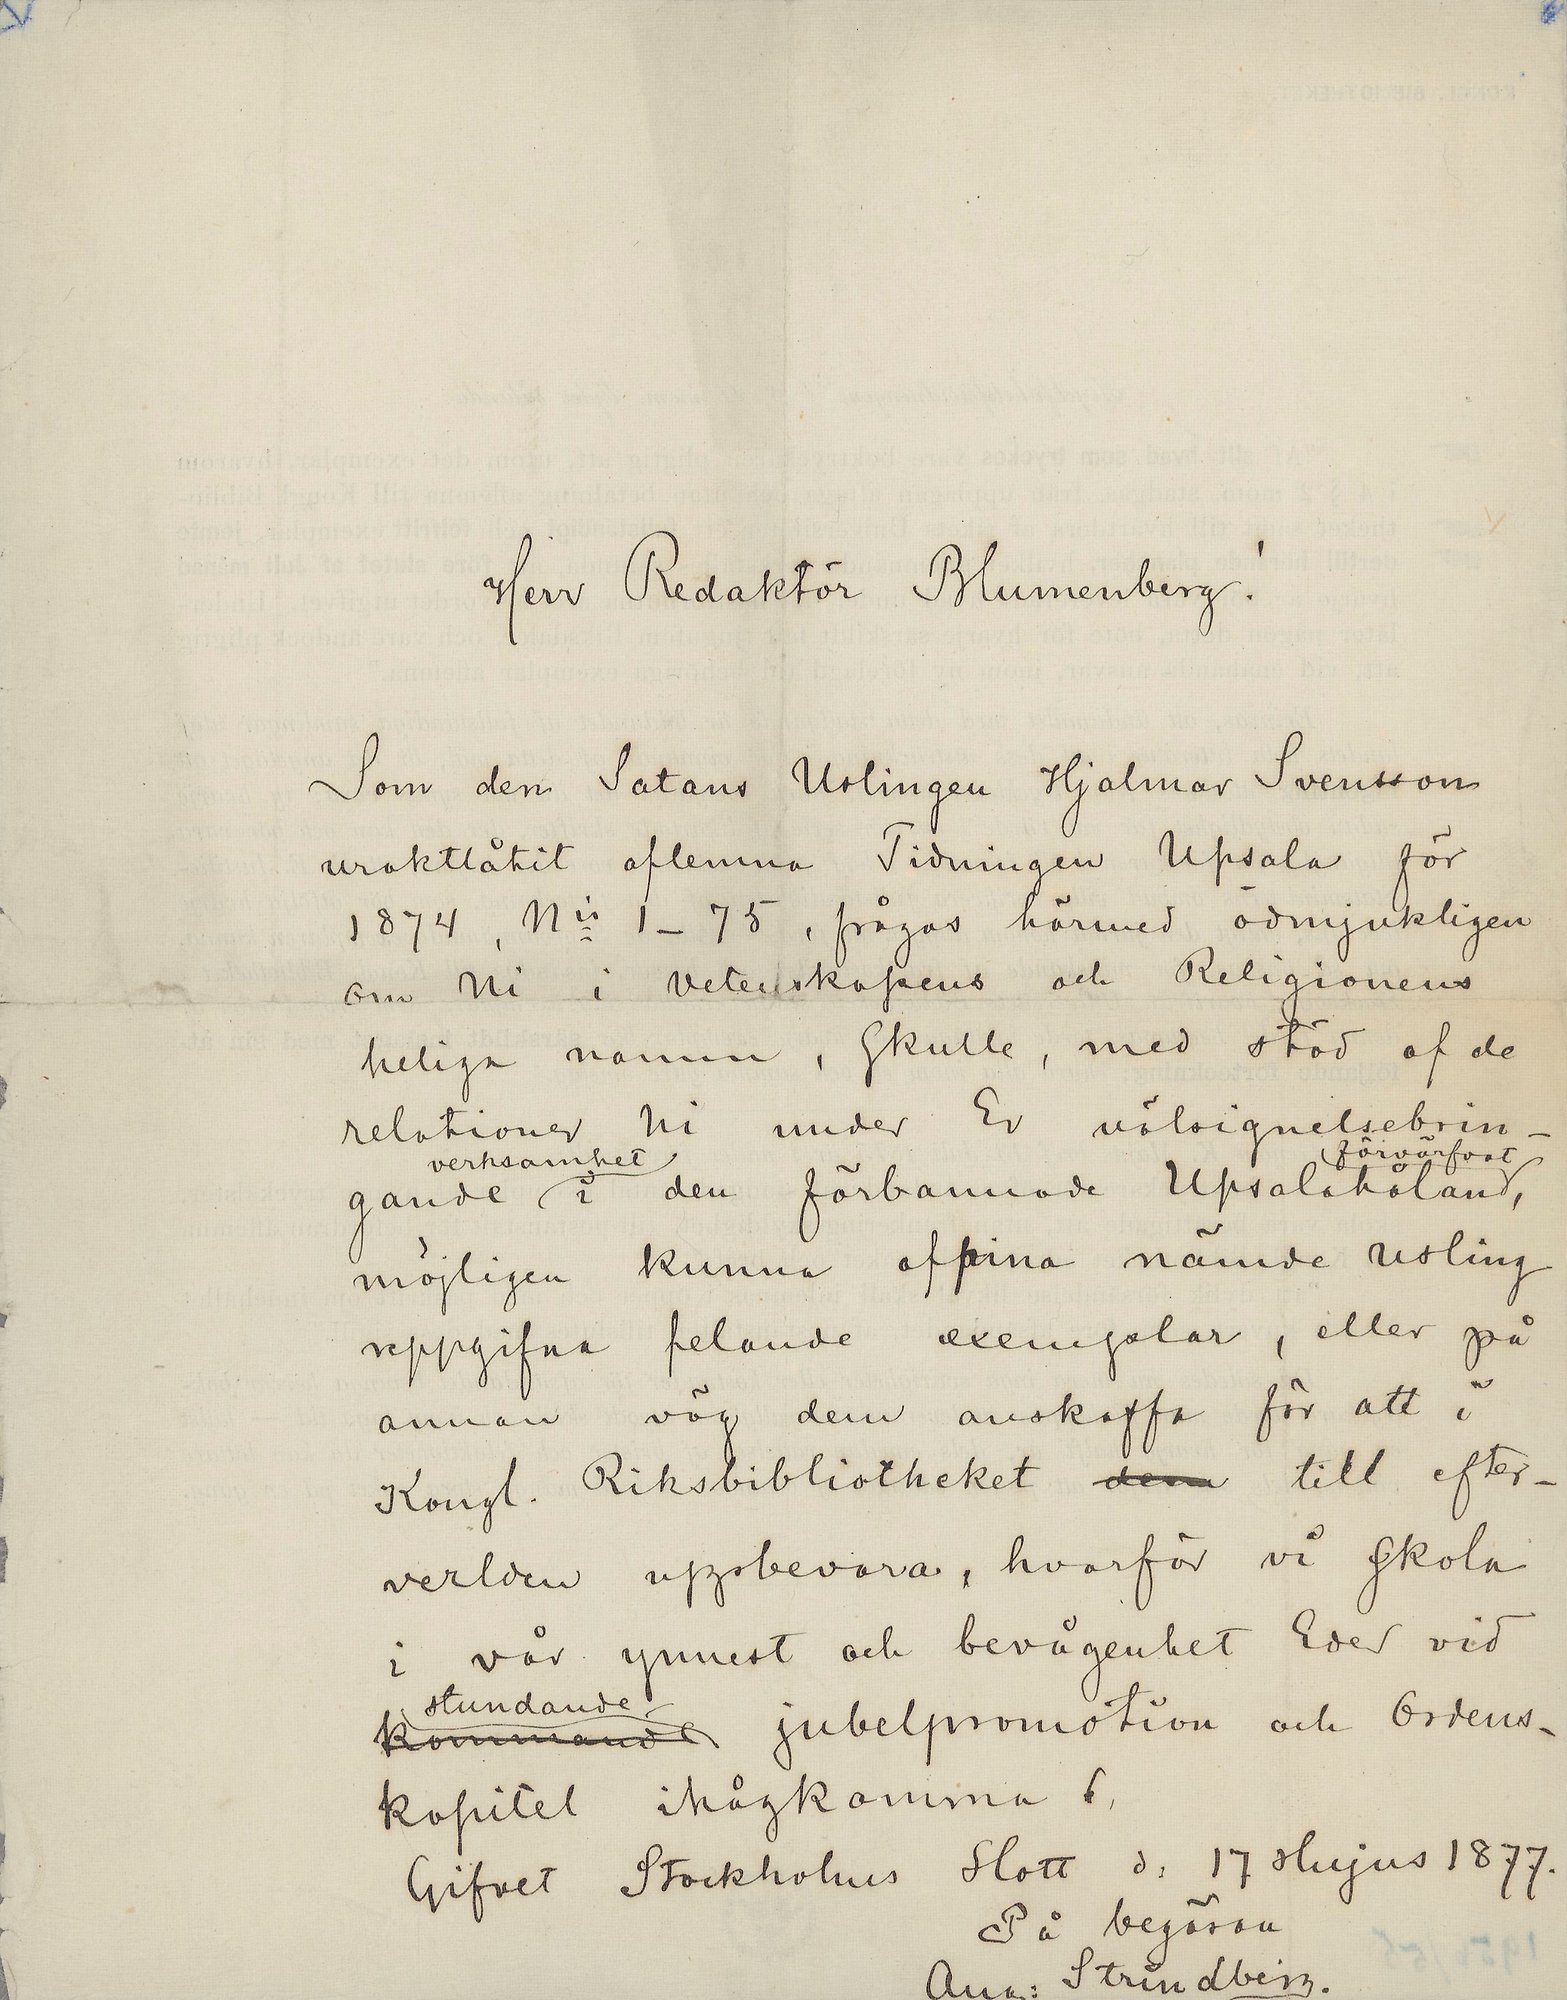 Herr Redaktör Blumenberg!
Som den Satans Uslingen Hjalmar Svensson
uraktlåtit aflemna Tidningen Upsala för
1874, N:is 1–75, frågas härmed ödmjukligen
om Ni i Vetenskapens och Religionens
heliga namn, skulle, med stöd af de
relationer Ni under Er välsignelsebrin-
verksamhet förvärfvat
gande i den förbannade Upsalahålan,
möjligen kunna afpina nämde usling
uppgifna felande exemplar, eller på
annan väg dem anskaffa för att i
Kongl. Riksbibliotheket dem till efter-
verlden uppbevara, hvarför vi skola
i vår ynnest och bevågenhet Eder vid
stundande
kommande jubelpromotion och Ordens-
kapitel ihågkomma
Gifvet Stockholms Slott d: 17 Hujus 1877.
På begäran
Aug: Strindberg.